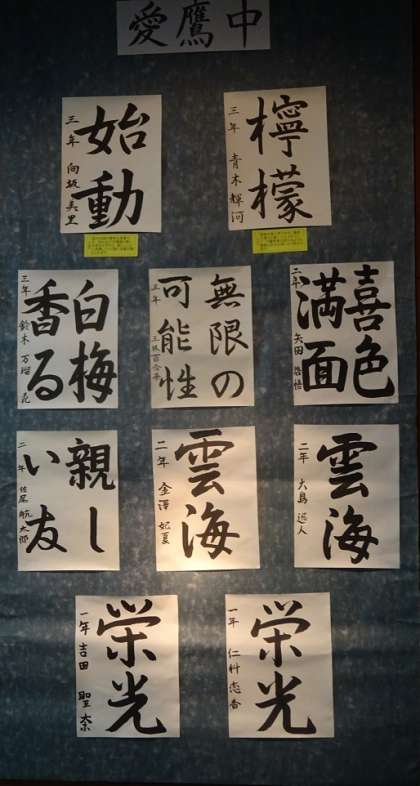 愛鷹中
檸檬
三年 青木輝河
始動
三年 向坂美里
喜色
満面
二年 矢田
無限の
可能性
三年
白梅
香る
三年 鈴木
雲海
二年 大島
雲海
二年 金澤妃夏
親し
い友
二年 航太郎
栄光
一年 仁科恋香
栄光
一年 吉田聖奈